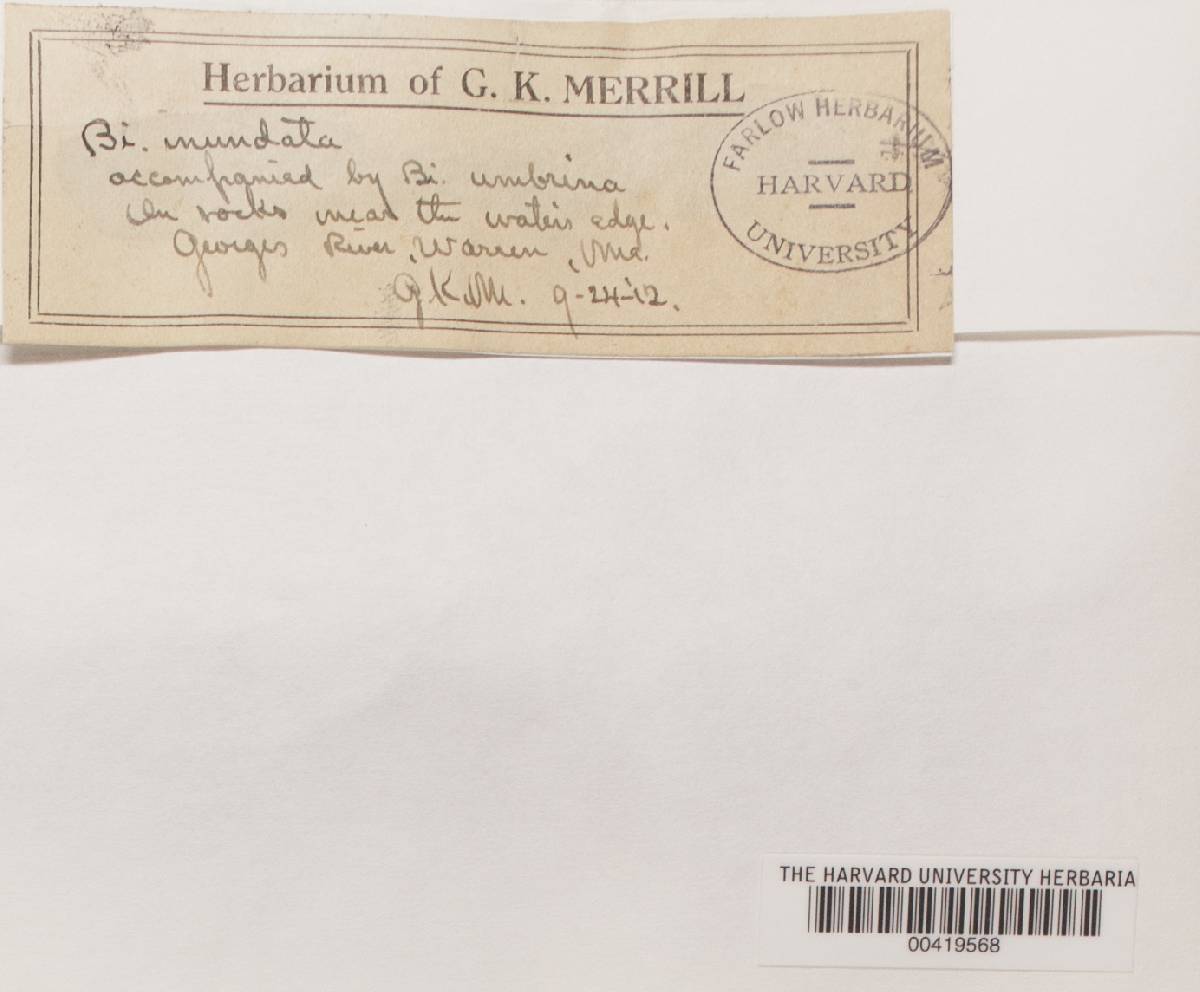 Herbarium of G. K. MERRILL
Bi. inundata
accompanied by Bi. umbrina
On rocks near the waters edge.
Georges River, Warren, Me.
G.K.M. 9-24-'12.
FARLOW HERBARIUM
HARVARD
UNIVERSITY
THE HARVARD UNIVERSITY HERBARIA
00419568